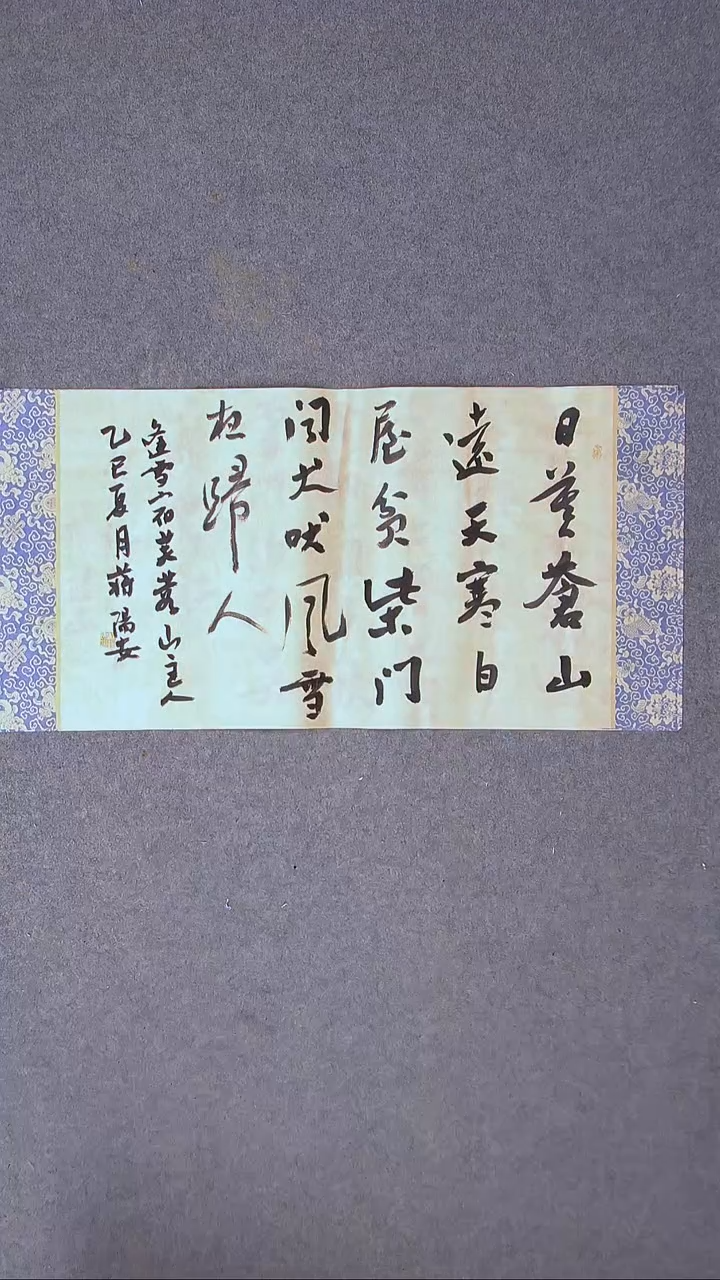 日暮蒼山
遠天寒白
屋貧柴门
闻犬吠风雪
夜歸人
逢雪宿芙蓉山主人
乙巳夏月蒋